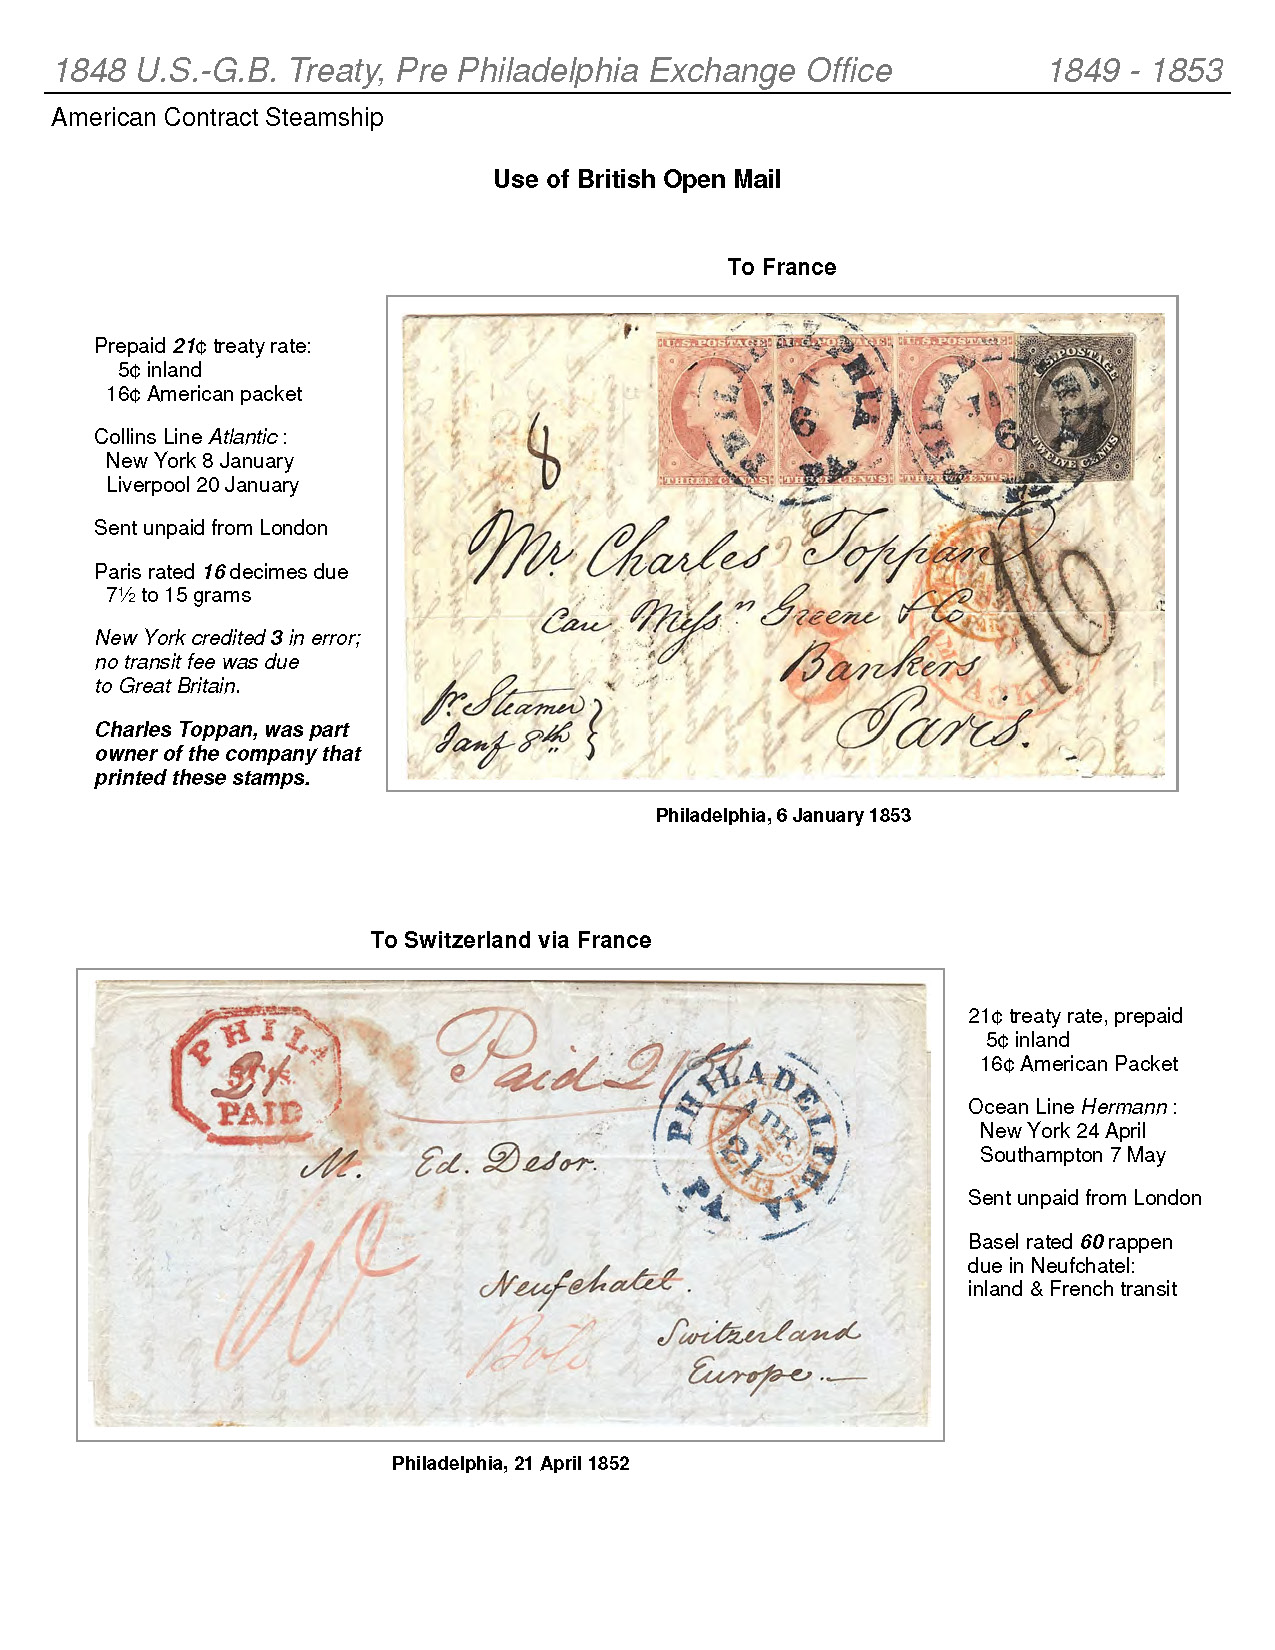 1848 U.S.-G.B. Treaty, Pre Philadelphia Exchange Office 1849 - 1853
American Contract Steamship
Use of British Open Mail
To France
Prepaid 21¢ treaty rate:
5¢ inland
16¢ American packet
Collins Line Atlantic :
New York 8 January
Liverpool 20 January
Sent unpaid from London
Paris rated 16 decimes due
7½ to 15 grams
New York credited 3 in error;
no transit fee was due
to Great Britain.
Charles Toppan, was part
owner of the company that
printed these stamps.
U.S. POSTAGE U.S. POSTAGE U.S. POSTAGE U.S. POSTAGE
THREE CENTS THREE CENTS THREE CENTS TWELVE CENTS
PHILADELPHIA
JAN
6
PA.
JAN
6
8
16
3
Mr. Charles Toppan
Care Messrs. Greene & Co
Bankers
Paris.
pr. Steamer
Jany 8th
Philadelphia, 6 January 1853
To Switzerland via France
PHILA
21
PAID
Paid 21
PHILADELPHIA
APR
21
PA
M. Ed. Desor.
Neufchatel.
Switzerland
Europe.
21¢ treaty rate, prepaid
5¢ inland
16¢ American Packet
Ocean Line Hermann :
New York 24 April
Southampton 7 May
Sent unpaid from London
Basel rated 60 rappen
due in Neufchatel:
inland & French transit
Philadelphia, 21 April 1852